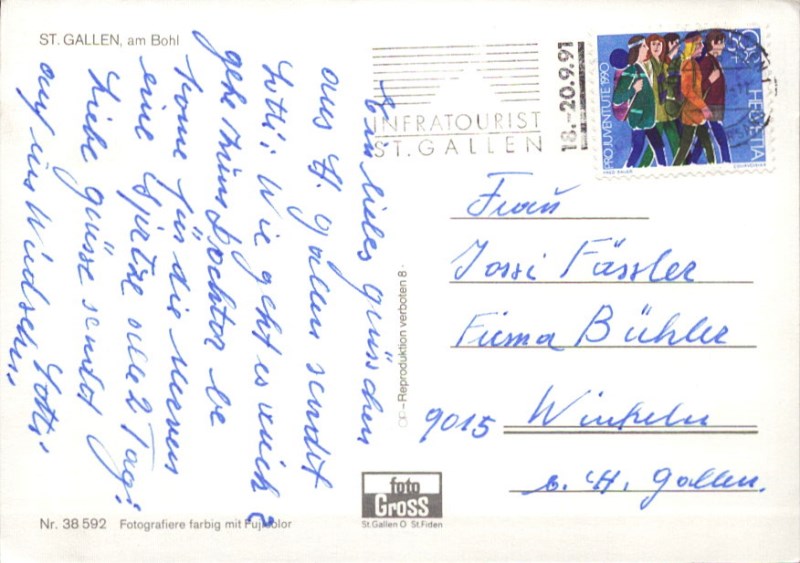 ST. GALLEN, am Bohl
Ein liebes grüsschen
aus St. Gallen sendet
Lotti! Wie geht es euch?
gehe zum Docktor be
kome für die Nerven
eine Spritze alle 2 Tag!
Liebe grüsse sendet
auf ins Lotti.
INFRATOURIST
ST. GALLEN
18.-20.9.91
PRO JUVENTUTE 1990
HELVETIA
Frau
Jossi Fässler
Firma Bühler
9015 Winkeln
b. St. Gallen.
- Reproduktion verboten 8 -
foto
GROSS
St. Gallen O St. Fiden
Nr. 38 592 Fotografiere farbig mit Fujicolor